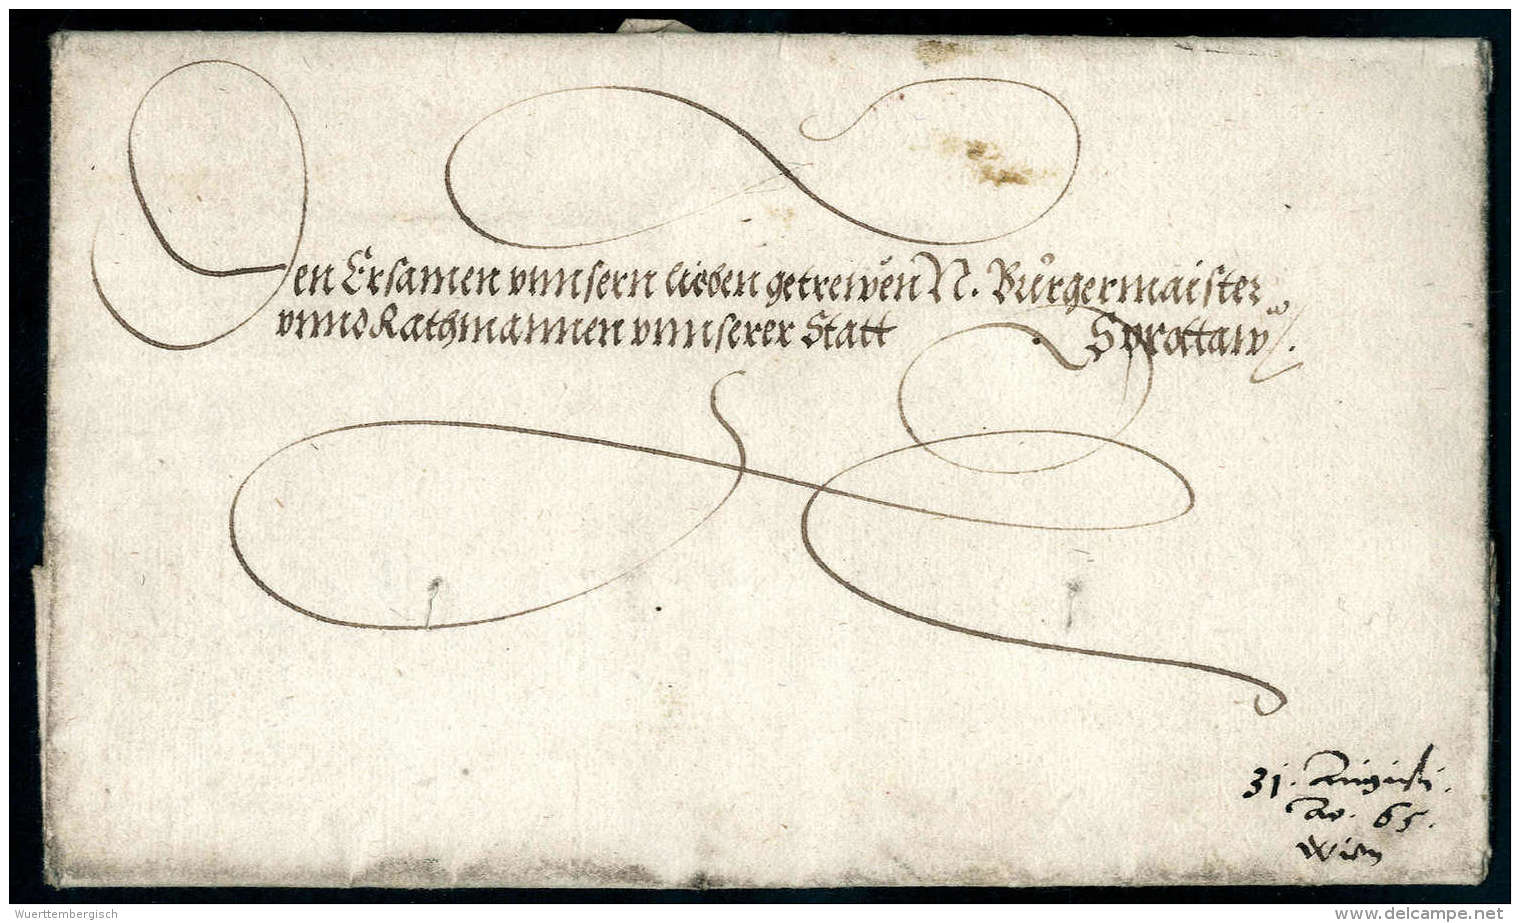 Den Ersamen vnnsern lieben getrewen N. Burgermaister
vnnd Rathmannen vnnserer Statt Sprottaw
31. Augusti.
Ao. 65.
Wien
Wuerttembergisch
www.delcampe.net